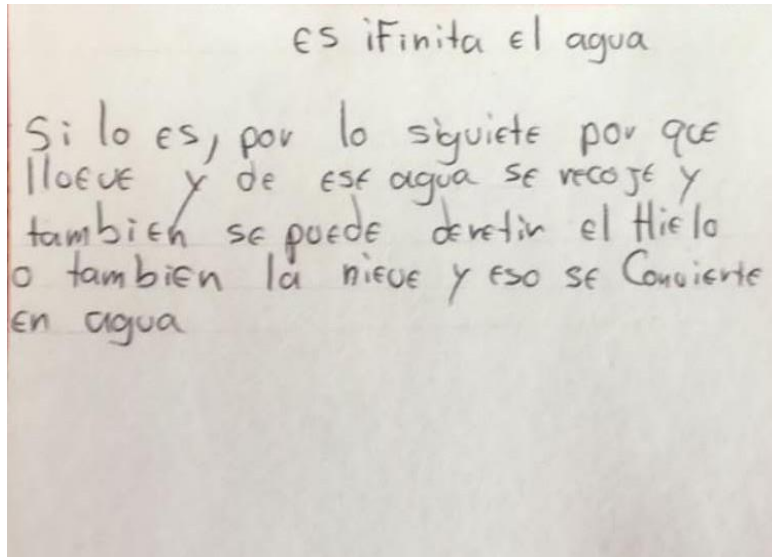 es iFinita el agua
Si lo es, por lo siguiete por que
lloeve y de ese agua se recoje y
tambien se puede deretir el Hielo
o tambien la nieve y eso se Convierte
en agua